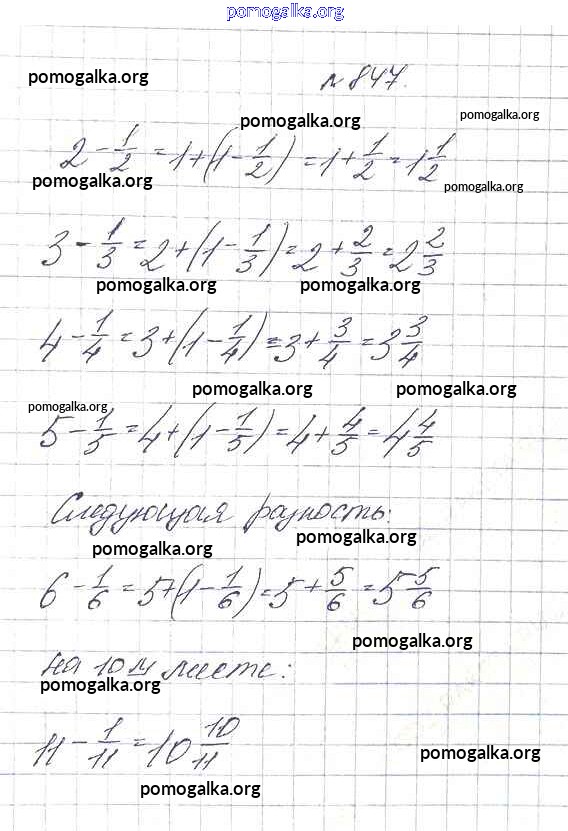 pomogalka.org
pomogalka.org
№ 847.
pomogalka.org
pomogalka.org
2 - 1/2 = 1 + (1 - 1/2) = 1 + 1/2 = 1 1/2
pomogalka.org
pomogalka.org
3 - 1/3 = 2 + (1 - 1/3) = 2 + 2/3 = 2 2/3
pomogalka.org
pomogalka.org
4 - 1/4 = 3 + (1 - 1/4) = 3 + 3/4 = 3 3/4
pomogalka.org
pomogalka.org
pomogalka.org
5 - 1/5 = 4 + (1 - 1/5) = 4 + 4/5 = 4 4/5
Следующая разность:
pomogalka.org
pomogalka.org
6 - 1/6 = 5 + (1 - 1/6) = 5 + 5/6 = 5 5/6
pomogalka.org
на 10м месте:
pomogalka.org
11 - 1/11 = 10 10/11
pomogalka.org
pomogalka.org